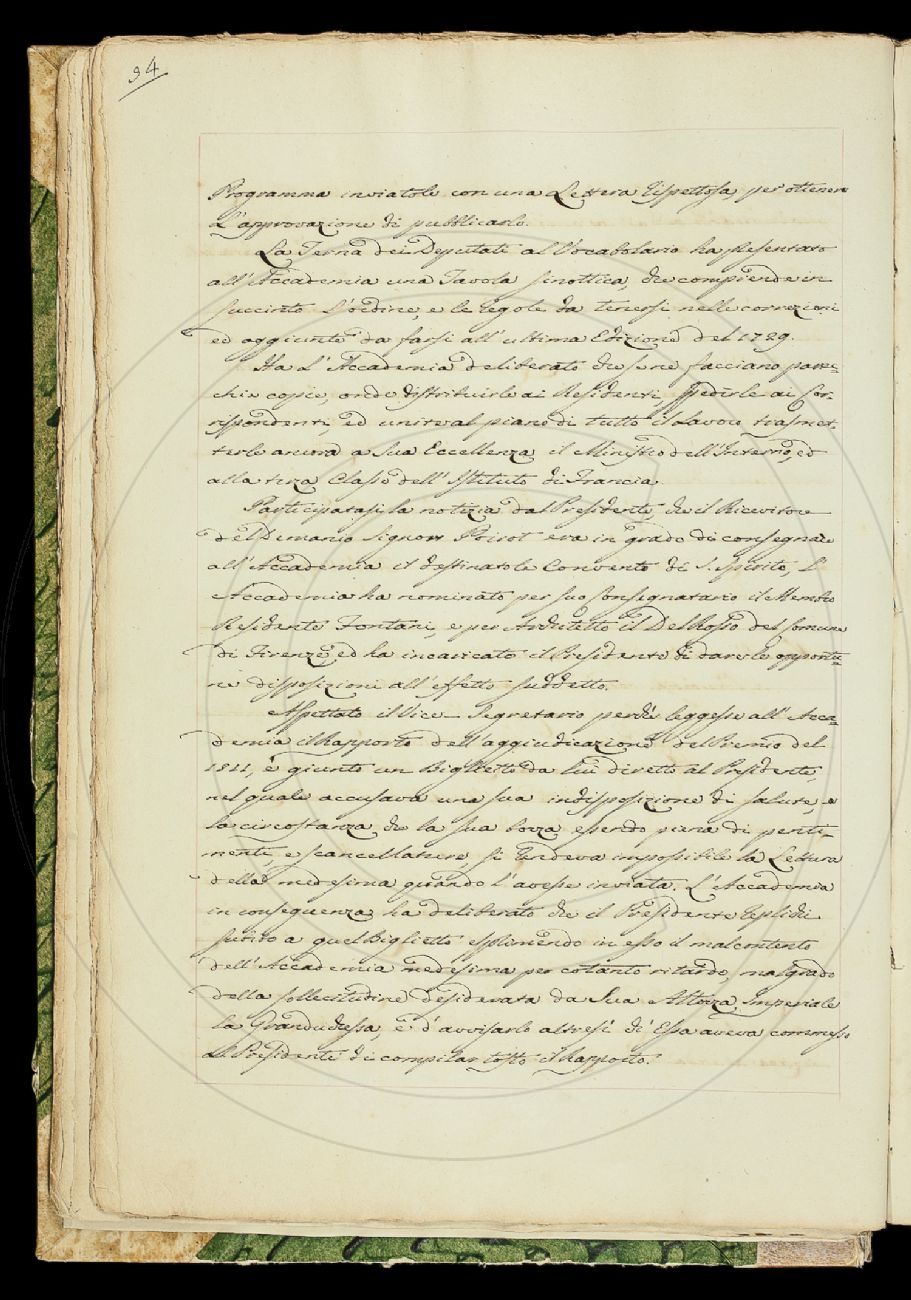 94
Programma inviatole con una Lettera rispettosa, per ottenere
l'approvazione di pubblicarlo.
La Terna dei Deputati al Vocabolario ha presentato
all'Accademia una Tavola sinottica, che comprende in
succinto l'ordine, e le regole da tenersi nelle correzioni
ed aggiunte da farsi all'ultima Edizione del 1729.
Ha l'Accademia deliberato che se ne facciano parec-
chie copie, onde distribuirle ai Residenti, spedirle ai Cor-
rispondenti, ed unite al piano di tutto il lavoro trasmet-
terle ancora a Sua Eccellenza il Ministro dell'Interno, ed
alla terza Classe dell'Istituto di Francia.
Participatasi la notizia dal Presidente, che il Ricevitore
del Demanio Signor Poirot era in grado di consegnare
all'Accademia il destinatole Convento di S. Spirito, l'
Accademia ha nominato per suo Consegnatario il Membro
Residente Fontani, e per Architetto il Del Rosso del Comune
di Firenze, ed ha incaricato il Presidente di dare le opportu-
ne disposizioni all'effetto suddetto.
Aspettato il Vice-Segretario perchè leggesse all'Acca-
demia il Rapporto dell'aggiudicazione del Premio del
1811, è giunto un Biglietto da lui diretto al Presidente,
nel quale accusava una sua indisposizione di salute, e
la circostanza che la sua bozza essendo piena di penti-
menti, e scancellature, si rendeva impossibile la Lettura
della medesima quando l'avesse inviata. L'Accademia
in conseguenza ha deliberato che il Presidente replichi
subito a quel Biglietto esprimendo in esso il malcontento
dell'Accademia medesima per cotanto ritardo, malgrado
della sollecitudine desiderata da Sua Altezza Imperiale
la Granduchessa, e d'avvisarlo altresì ch'Essa aveva commesso
al Presidente di compilar tosto il Rapporto.